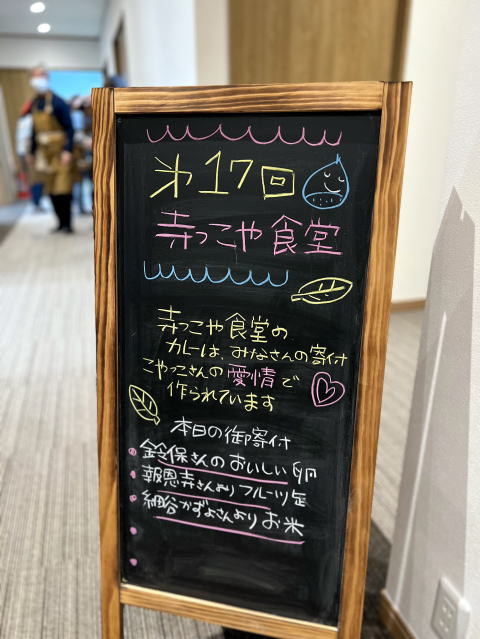 第17回
寺っこや食堂
寺っこや食堂の
カレーは、みなさんの寄付
こやっこさんの愛情で
作られています
本日の御寄付
鈴保さんのおいしい卵
報恩寺さんよりフルーツ缶
細谷かずよさんよりお米